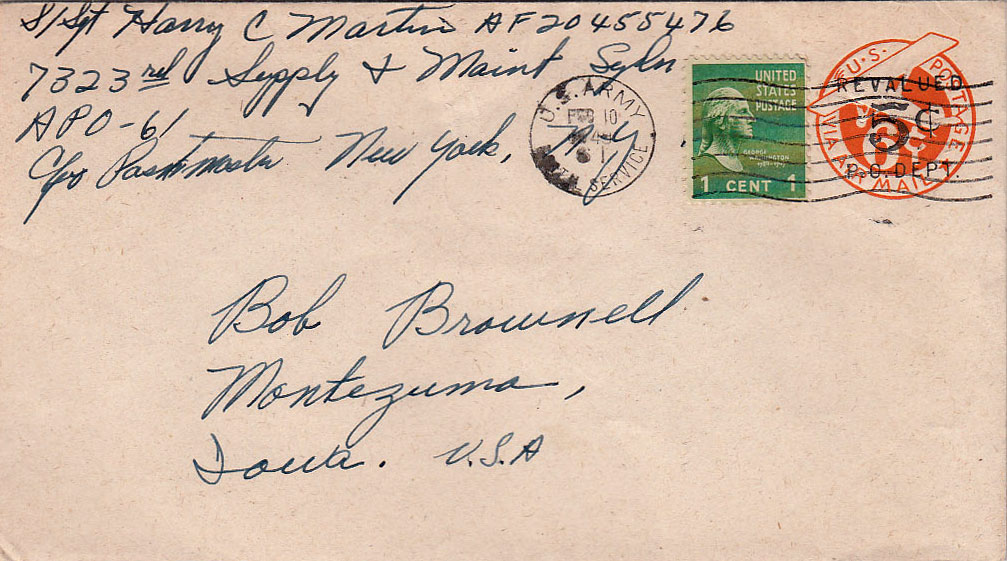 S/Sgt Harry C Martin AF20455476
7323rd Supply & Maint Sqdn
APO-61
c/o Postmaster New York, N.Y.
U.S. ARMY
FEB 10
POSTAL SERVICE
UNITED
STATES
POSTAGE
GEORGE
WASHINGTON
1 CENT 1
U·S· POSTAGE
VIA AIR MAIL
6¢
REVALUED
5¢
P.O. DEPT.
Bob Brownell
Montezuma,
Iowa. U.S.A